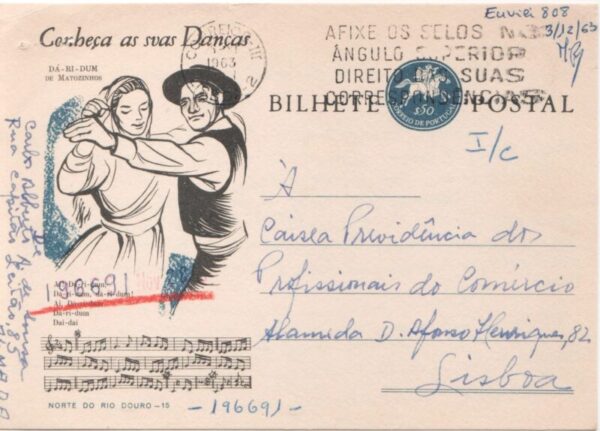 Enviei 808
3/12/63
AFIXE OS SELOS NO
ÂNGULO SUPERIOR
DIREITO DAS SUAS
CORRESPONDÊNCIAS
1963
Conheça as suas Danças
DÁ-RI-DUM
DE MATOZINHOS
BILHETE POSTAL
$50
CORREIO DE PORTUGAL
I/c
À
Caixa Previdência dos
Profissionais do Comércio
Alameda D. Afonso Henriques, 82
Lisboa
De
Carlos Alberto
Rua Capitão Leitão 85
ALMADA
196691
Dá-ri-dum
Dai-dai
NORTE DO RIO DOURO - 15
-196691-